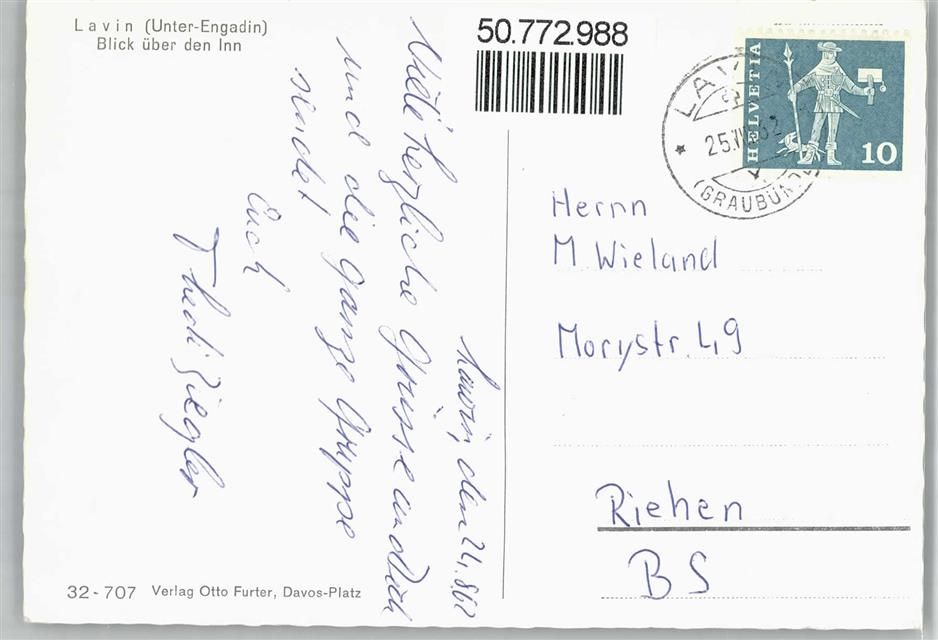 Lavin (Unter-Engadin)
Blick über den Inn
50.772.988
HELVETIA
10
LAV
25.VI
(GRAUBÜN
Lavin, den 24.8.62
Viele herzliche Grüsse an Dich
und die ganze Gruppe
sindet
Euch
Thedi Ziegler
Herrn
M. Wieland
Morystr. 49
Riehen
BS
32-707 Verlag Otto Furter, Davos-Platz